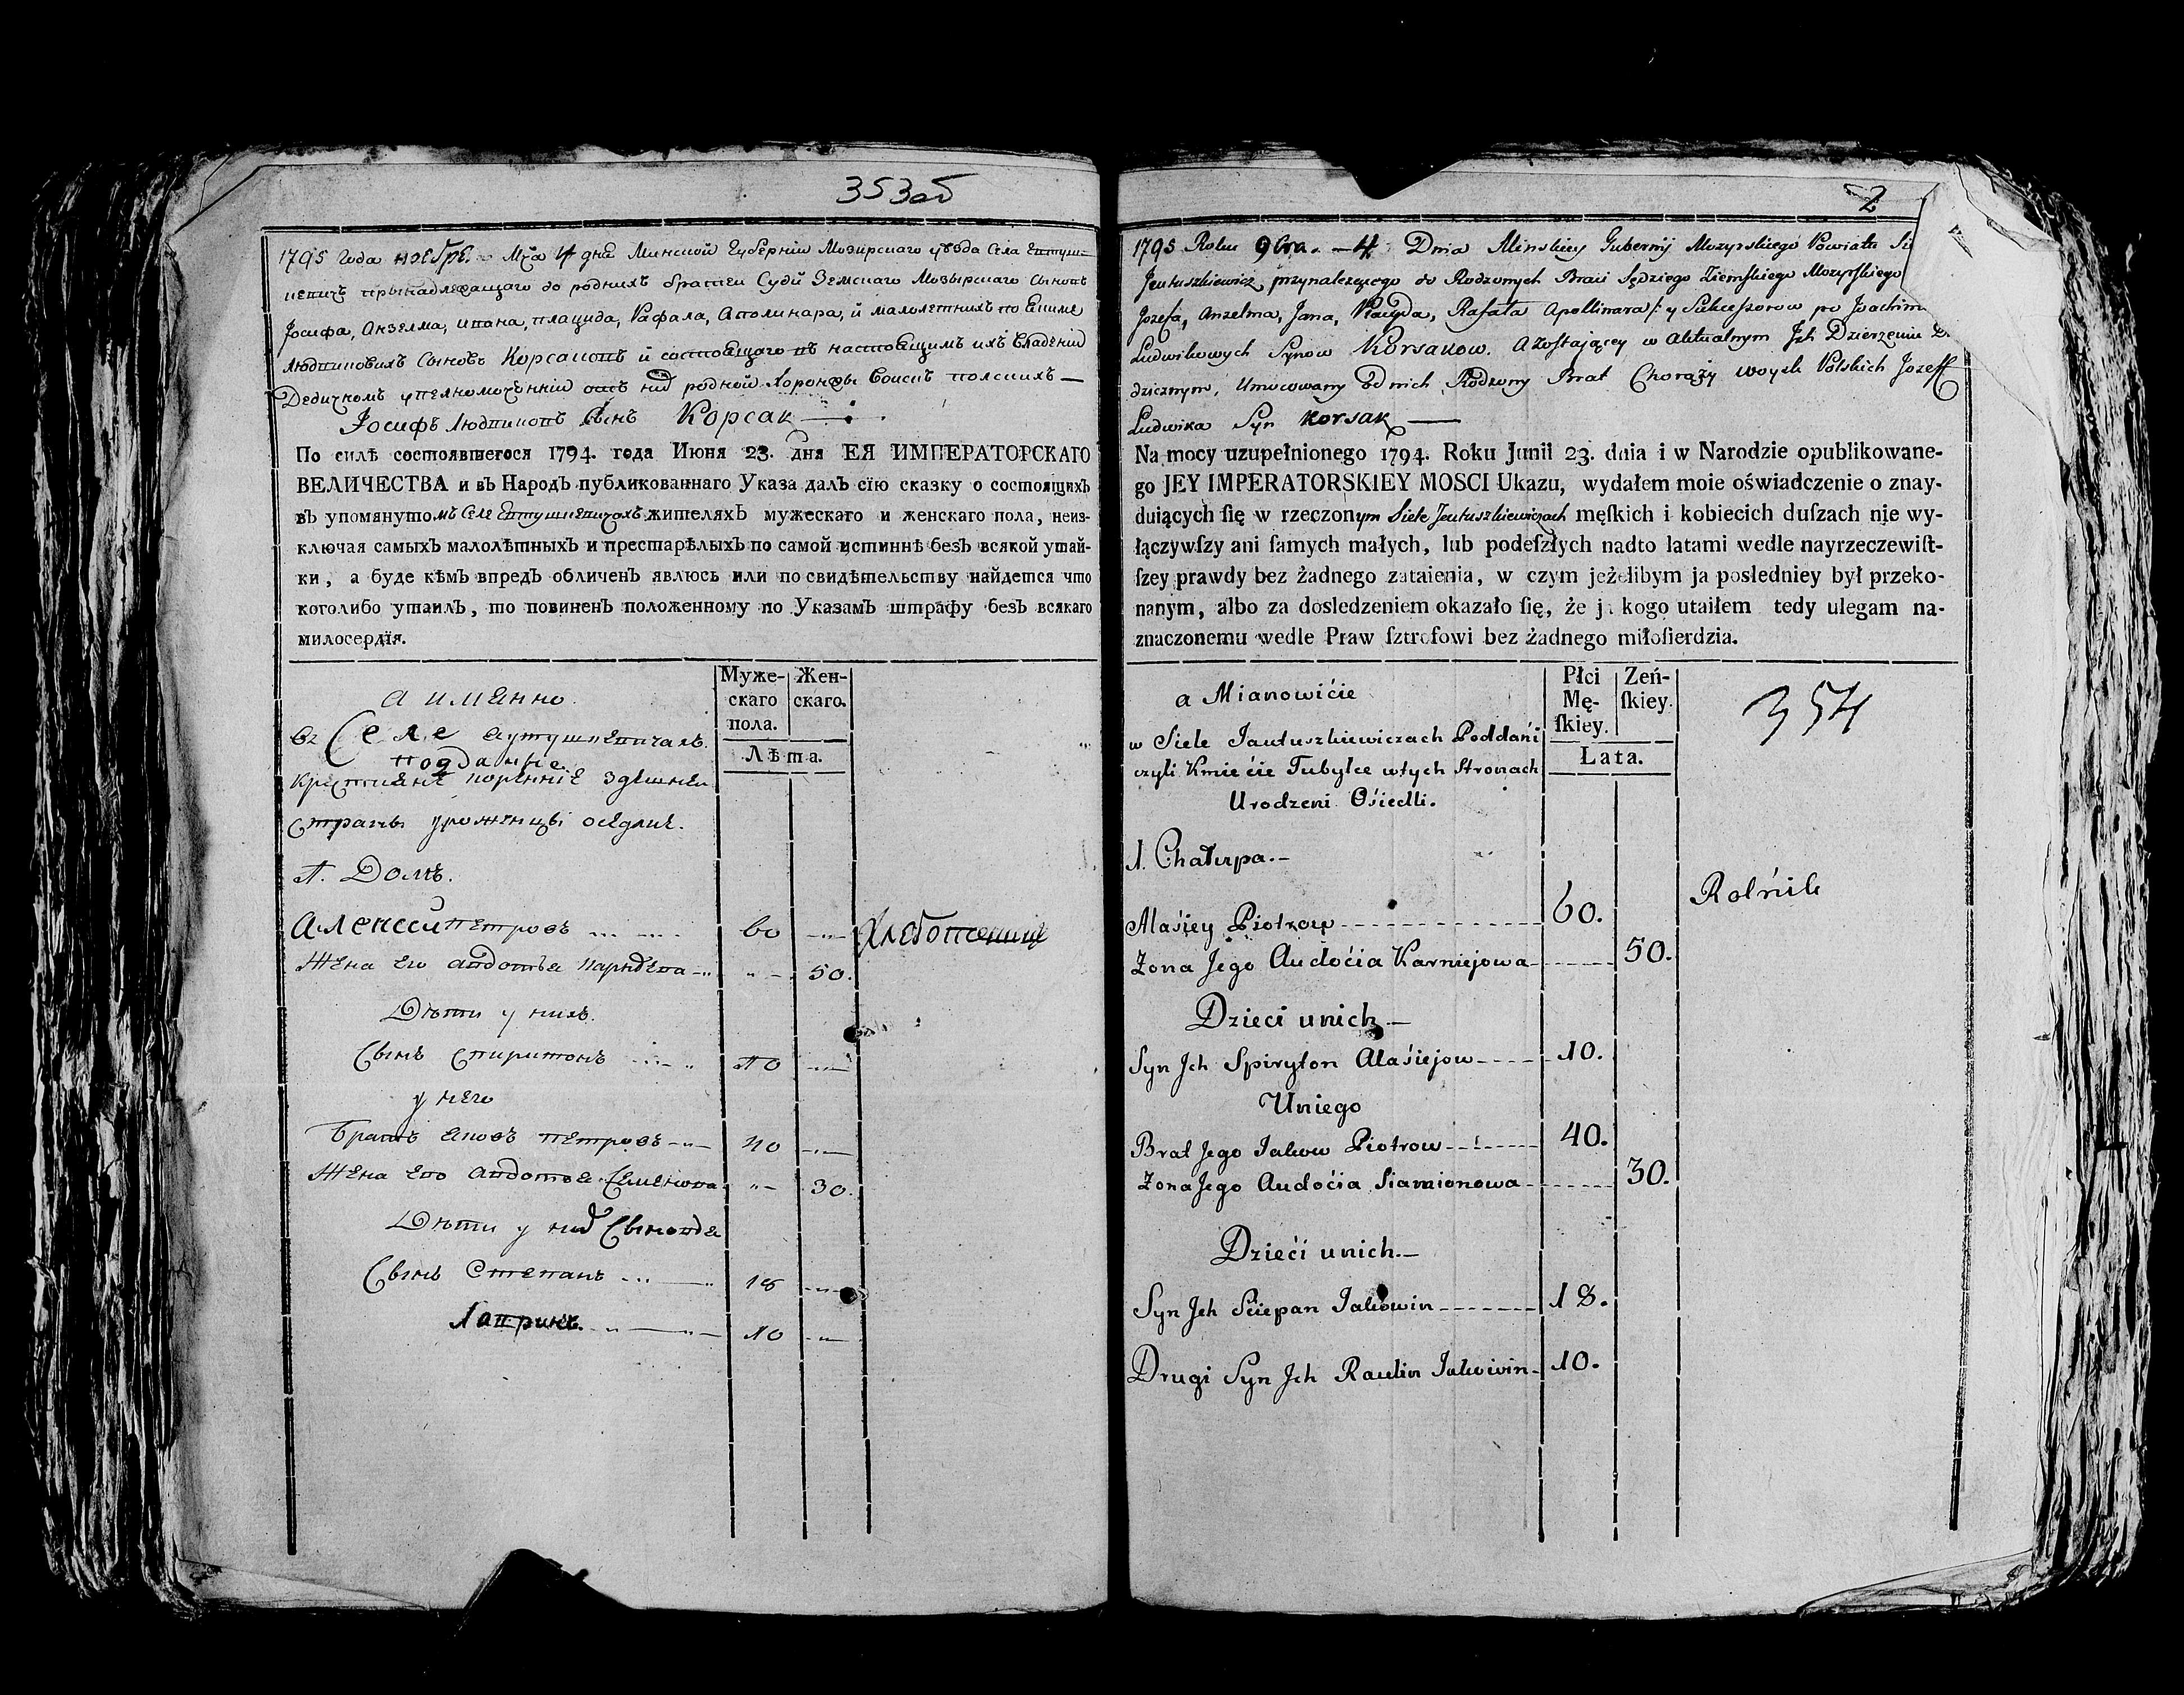 353об
1795 года ноебре Мца 4 дня Минской Губернїи Мозирскаго уѣзда Села
принадлежащаго до родныхъ братей Судїи Земскаго Мозырскаго Сыновъ
Іосифа, Анзелма, Ивана, плацида, Рафала, Аполинара, и малолетнихъ по
Людвиковихъ Сыновъ Корсаковъ и состоящаго въ настоящимъ ихъ владенїи
Дедичномъ родной Хоронжы Воискъ полскихъ —
Іосифъ Людвиковъ Сынъ Корсак
По силѣ состоявшегося 1794. года Июня 23. дня ЕЯ ИМПЕРАТОРСКАГО
ВЕЛИЧЕСТВА и въ Народъ публикованнаго Указа далъ сїю сказку о состоящихъ
въ упомянутомъ Селе жителяхъ мужескаго и женскаго пола, неиз-
ключая самыхъ малолѣтныхъ и престарѣлыхъ по самой истиннѣ безъ всякой утай-
ки, а буде кѣмъ впредъ обличенъ явлюсь или по свидѣтельству найдется что
коголибо утаилъ, то повиненъ положенному по Указамъ штрафу безъ всякаго
милосердїя.
Муже-
скаго
пола.
Жен-
скаго.
Лѣта.
а именно
въ Селе
подданые
крестяне коренніе здешнеи
страны уроженцы оседлие.
1. Домъ.
Алексей петровъ 60 Хлебопашец
Жена его авдотья 50.
Дѣти у нихъ.
Сынъ спиритонъ 10
у него
Братъ яковъ петровъ 40
Жена его авдотья Семенова 30.
Дѣти у них
Сынъ Степанъ 18
10
2
1795 Roku 9bra. — 4 Dnia Minskiey Gubernij Mozyrskiego Powiatu
Jeutuszkiewicz, przynależącego do Rodzonych Braci Sędziego Ziemskiego Mozyrskiego
Jozefa, Anzelma, Jana, Placyda, Rafała Apollinara /: y Sukcessorow po Joachim
Ludwikowych Synow Korsakow. A zostaiącey w Aktualnym Jch Dzierzeniu
dzicznym, Umocowany od nich Rodzony Brat Chorąży woysk Polskich Jozeff
Ludwika Syn Korsak
Na mocy uzupełnionego 1794. Roku Junii 23. dnia i w Narodzie opublikowane-
go JEY IMPERATORSKIEY MOSCI Ukazu, wydałem moie oświadczenie o znay-
duiących ſię w rzeczonym Siele Jeutuszkiewiczach męſkich i kobiecich duſzach nie wy-
łączywſzy ani ſamych małych, lub podeſzłych nadto latami wedle nayrzeczewiſt-
ſzey prawdy bez żadnego zataienia, w czym jeżelibym ja posledniey był przeko-
nanym, albo za dosledzeniem okazało ſię, że ja kogo utaiłem tedy ulegam na-
znaczonemu wedle Praw ſztrofowi bez żadnego miłoſierdzia.
Płci
Mę-
ſkiey.
Zeń-
ſkiey.
Lata.
354
a Mianowićie
w Siele Jautuszkiewiczach Poddańi
czyli Kmiećie Tubylce wtych Stronach
Urodzeni Ośiedli.
1. Chałupa.
Alaśiey Piotrow 60. Rolńik
Zona Jego Audoćia Karniejowa 50.
Dzieci unich
Syn Jch Spiryton Alaśiejow 10.
Uniego
Brat Jego Jakow Piotrow 40.
Zona Jego Audoćia Siamionowa 30.
Dzieći unich.
Syn Jch Sćiepan Jakowin 18.
Drugi Syn Jch Raulin Jakowin 10.